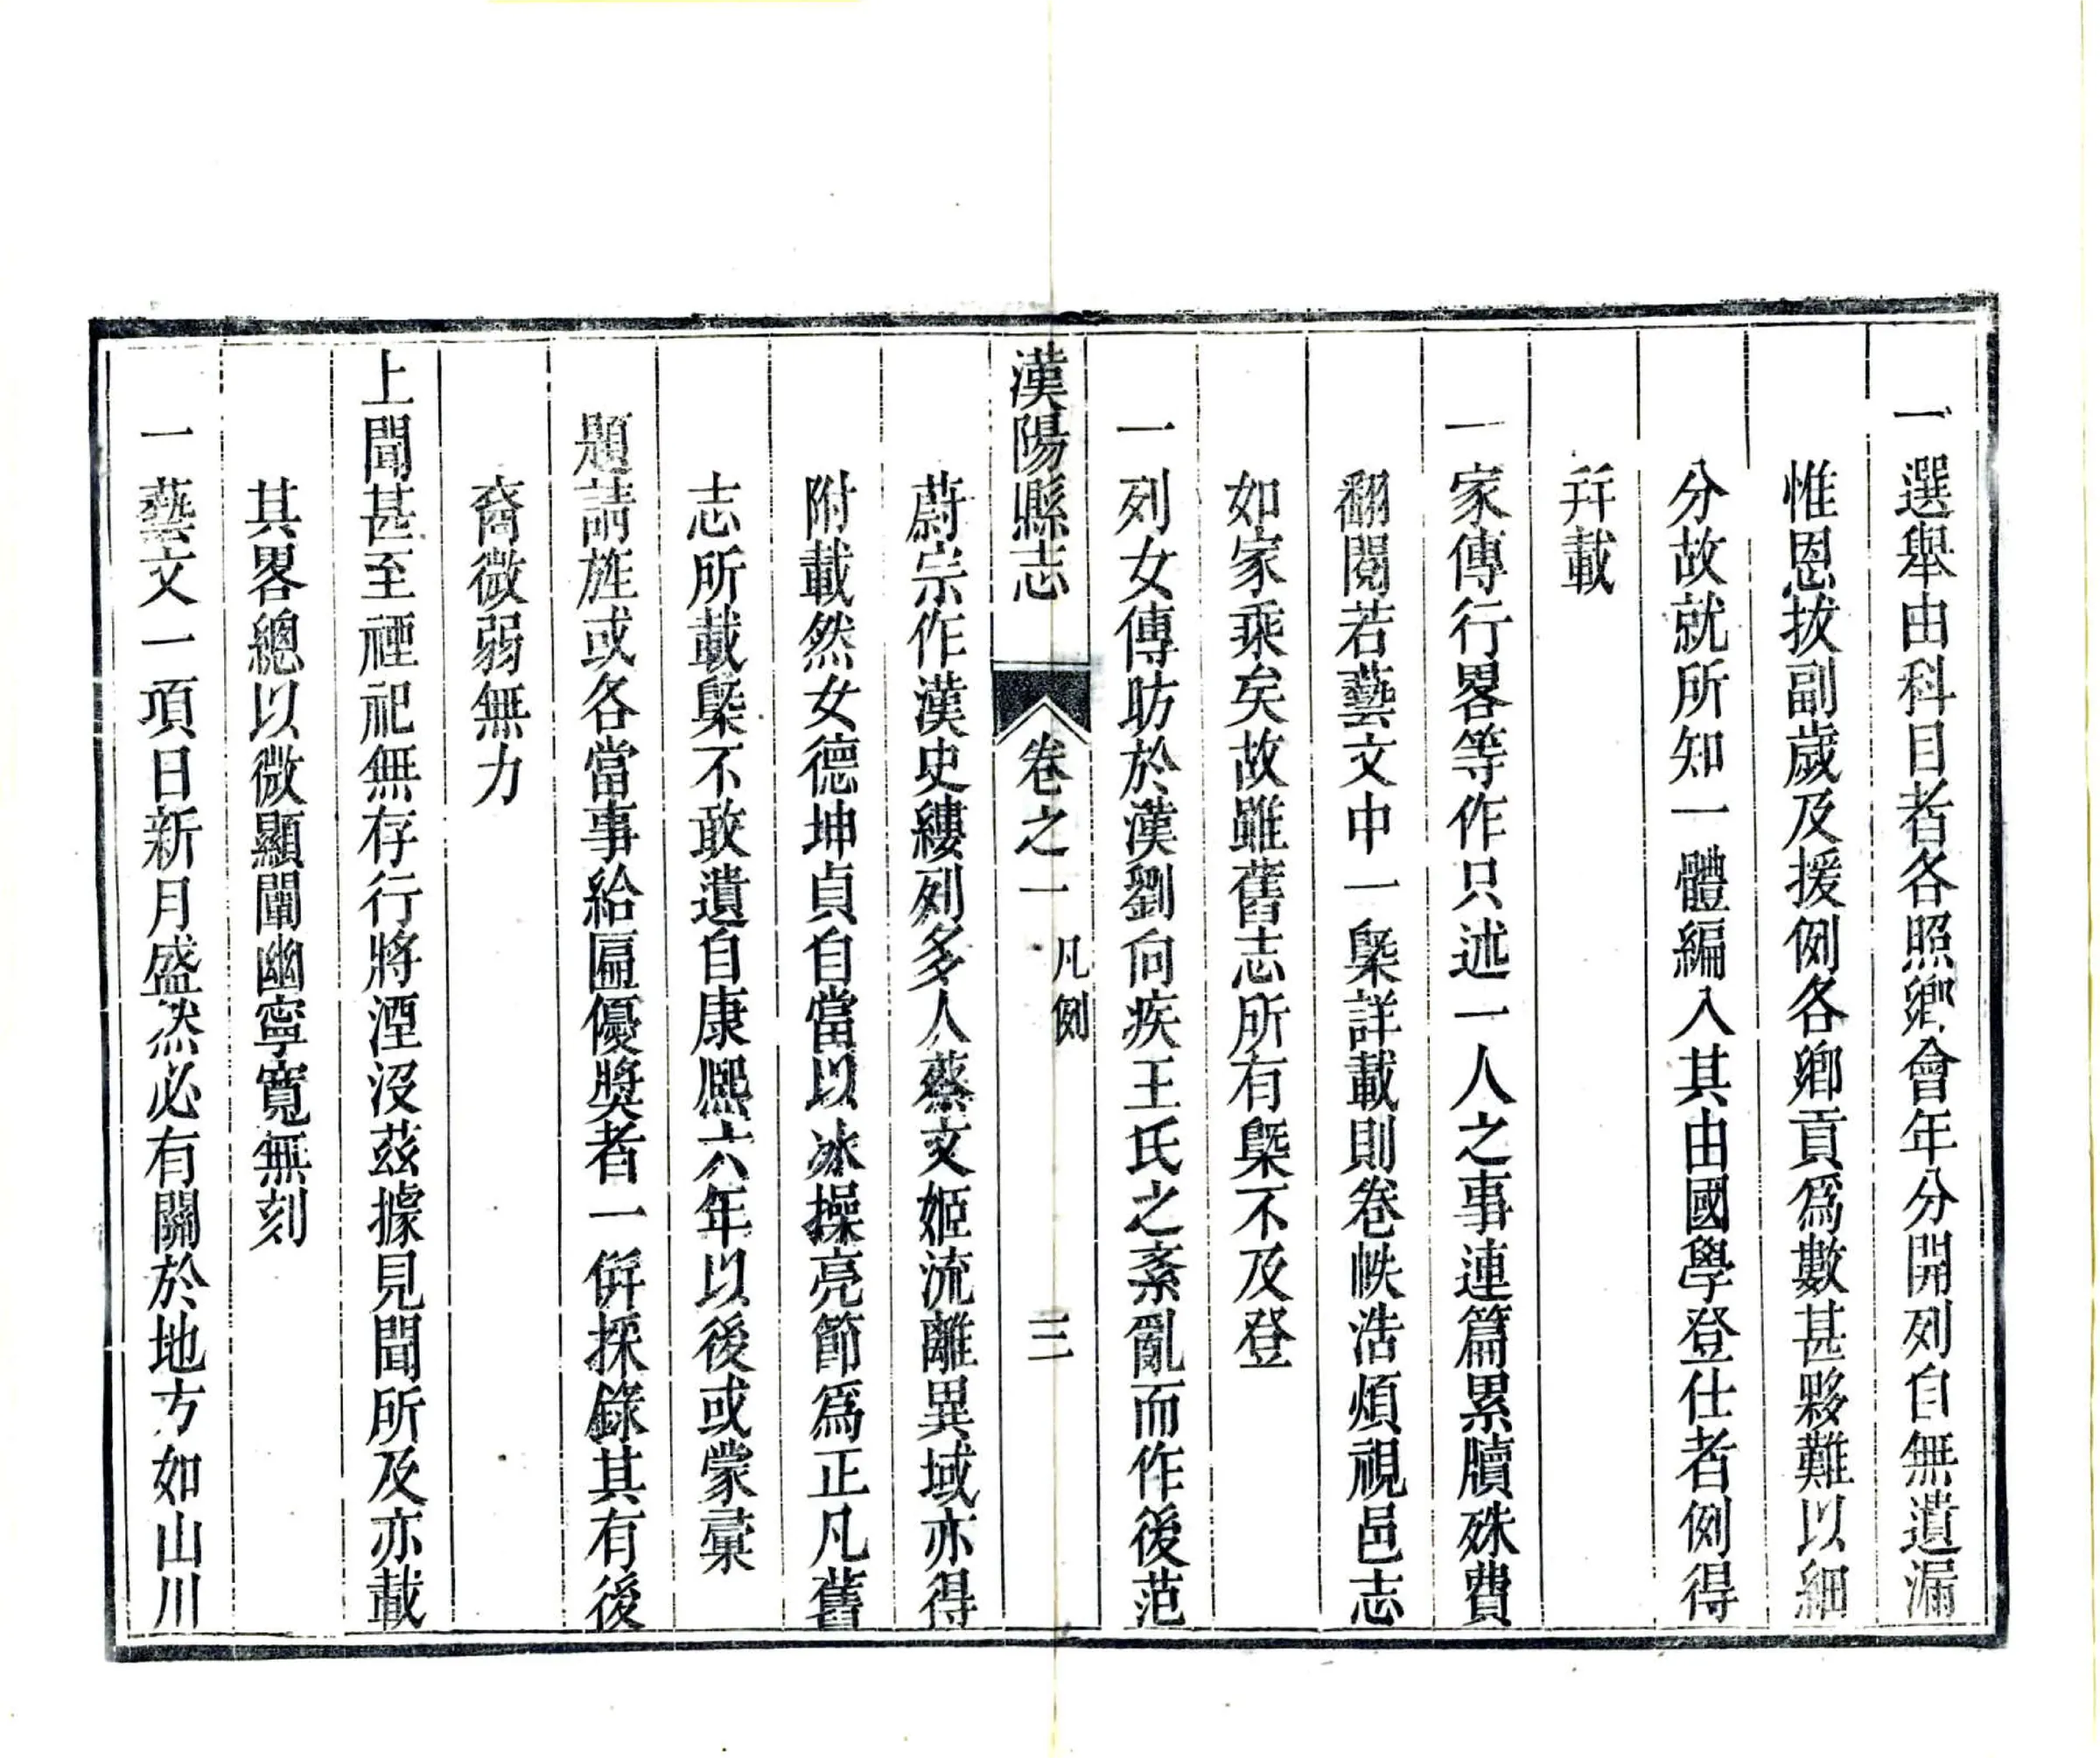 一選舉由科目者各照鄉會年分開列自無遺漏
惟恩拔副歲及援例各鄉貢爲數甚夥難以細
分故就所知一體編入其由國學登仕者例得
幷載
一家傳行畧等作只述一人之事連篇累牘殊費
翻閱若藝文中一槩詳載則卷帙浩煩視邑志
如家乘矣故雖舊志所有槩不及登
一列女傳昉於漢劉向疾王氏之紊亂而作後范
漢陽縣志 卷之一 凡例 三
蔚宗作漢史縷列多人蔡文姬流離異域亦得
附載然女德坤貞自當以冰操亮節爲正凡舊
志所載槩不敢遺自康熙六年以後或蒙彙
題請旌或各當事給匾優獎者一倂採錄其有後
裔微弱無力
上聞甚至禋祀無存行將湮沒茲據見聞所及亦載
其畧總以微顯闡幽寧寬無刻
一藝文一項日新月盛然必有關於地方如山川